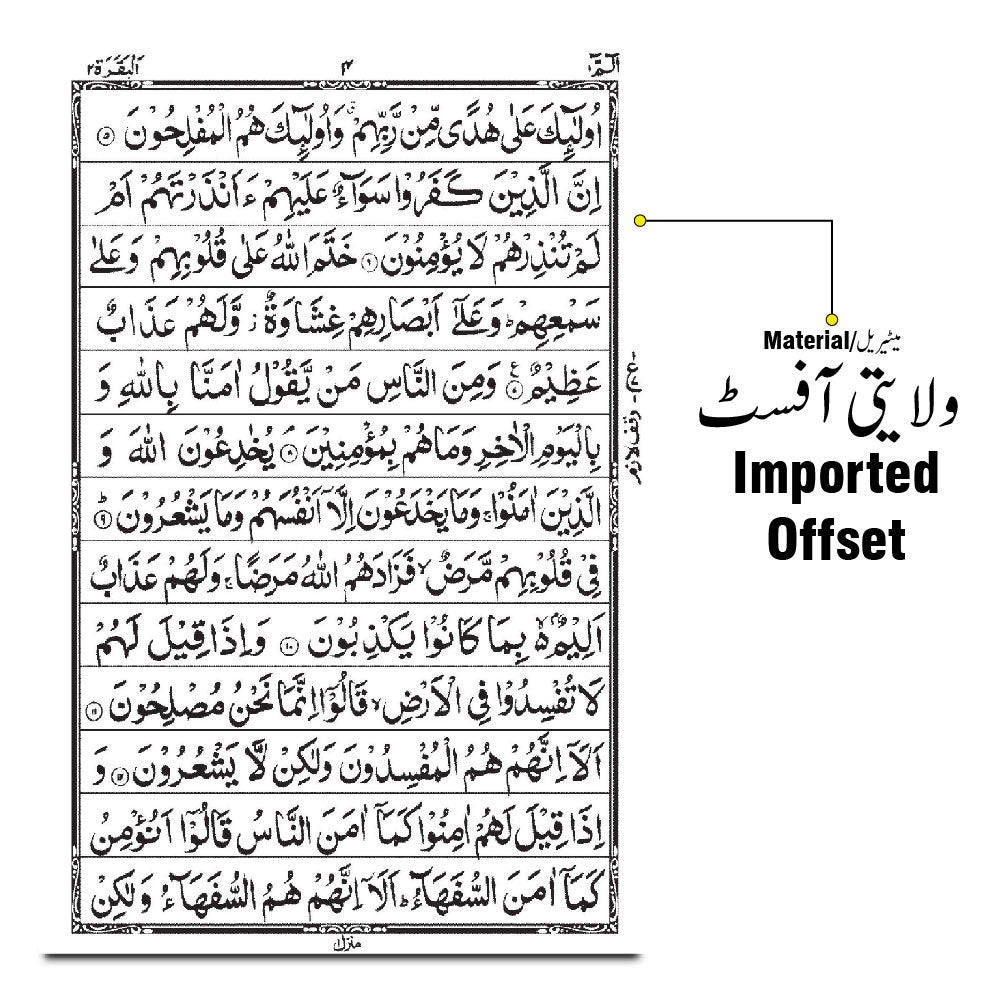 الٓمّٓ ۱
۴
الْبَقَرَة ۲
اُولٰٓئِكَ عَلٰى هُدًى مِّنْ رَّبِّهِمْ ۙ وَاُولٰٓئِكَ هُمُ الْمُفْلِحُوْنَ ۝۵
اِنَّ الَّذِيْنَ كَفَرُوْا سَوَآءٌ عَلَيْهِمْ ءَاَنْذَرْتَهُمْ اَمْ
لَمْ تُنْذِرْهُمْ لَا يُؤْمِنُوْنَ ۝۶ خَتَمَ اللّٰهُ عَلٰى قُلُوْبِهِمْ وَعَلٰى
سَمْعِهِمْ ؕ وَعَلٰٓى اَبْصَارِهِمْ غِشَاوَةٌ ز وَّلَهُمْ عَذَابٌ
عَظِيْمٌ ۝۷ وَمِنَ النَّاسِ مَنْ يَّقُوْلُ اٰمَنَّا بِاللّٰهِ وَ
بِالْيَوْمِ الْاٰخِرِ وَمَا هُمْ بِمُؤْمِنِيْنَ ۝۸ يُخٰدِعُوْنَ اللّٰهَ وَ
الَّذِيْنَ اٰمَنُوْا ۚ وَمَا يَخْدَعُوْنَ اِلَّآ اَنْفُسَهُمْ وَمَا يَشْعُرُوْنَ ۝۹ؕ
فِيْ قُلُوْبِهِمْ مَّرَضٌ ۙ فَزَادَهُمُ اللّٰهُ مَرَضًا ۚ وَلَهُمْ عَذَابٌ
اَلِيْمٌۢ ۙ۬ بِمَا كَانُوْا يَكْذِبُوْنَ ۝۱۰ وَاِذَا قِيْلَ لَهُمْ
لَا تُفْسِدُوْا فِي الْاَرْضِ ۙ قَالُوْٓا اِنَّمَا نَحْنُ مُصْلِحُوْنَ ۝۱۱
اَلَآ اِنَّهُمْ هُمُ الْمُفْسِدُوْنَ وَلٰكِنْ لَّا يَشْعُرُوْنَ ۝۱۲ وَ
اِذَا قِيْلَ لَهُمْ اٰمِنُوْا كَمَآ اٰمَنَ النَّاسُ قَالُوْٓا اَنُؤْمِنُ
كَمَآ اٰمَنَ السُّفَهَآءُ ؕ اَلَآ اِنَّهُمْ هُمُ السُّفَهَآءُ وَلٰكِنْ
منزل
وقف لازم
Material/میٹیریل
ولایتی آفسٹ
Imported
Offset